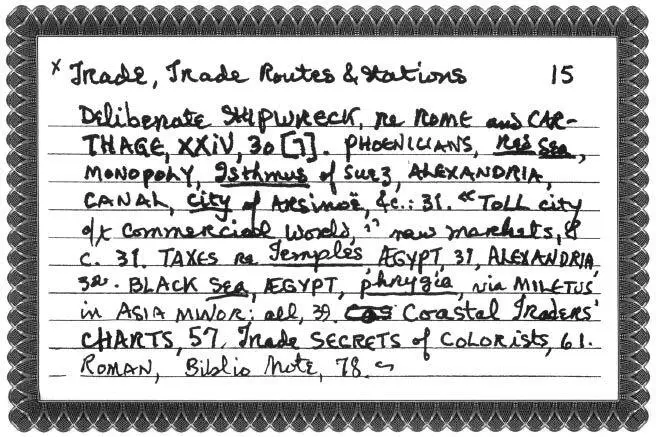 x Trade, Trade Routes & Stations 15
Deliberate SHIPWRECK, re ROME and CAR-
THAGE, XXIV, 30 [7]. PHOENICIANS, Red Sea,
MONOPOLY, Isthmus of Suez, ALEXANDRIA,
CANAL, city of ARSINOË, &c.: 31. "Toll city
of t commercial World," new markets, &
c. 31. TAXES re Temples ÆGYPT 31, ALEXANDRIA
32. BLACK Sea, ÆGYPT, phrygia, via MILETUS
in ASIA MINOR: all, 39. Coastal Traders'
CHARTS, 57. Trade SECRETS of COLORISTS, 61.
ROMAN, Biblio Note, 78.